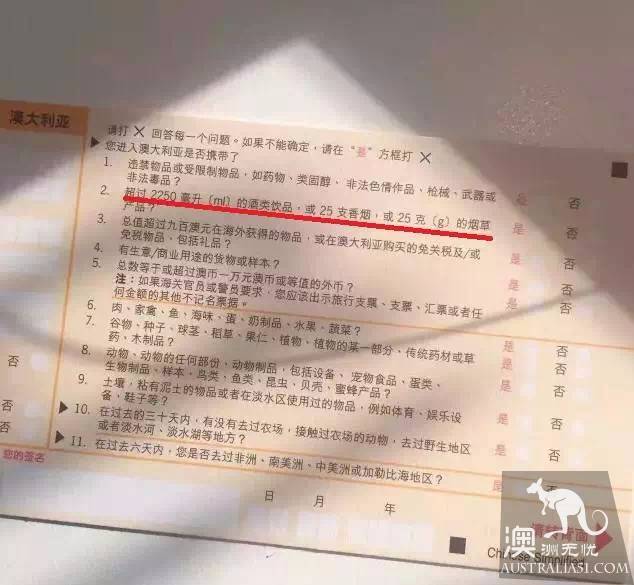 澳大利亚
请打 X 回答每一个问题。如果不能确定，请在“是”方框打 X
▶您进入澳大利亚是否携带了
1. 违禁物品或受限制物品，如药物、类固醇、非法色情作品、枪械、武器或
非法毒品？
是 否
2. 超过 2250 毫升（ml）的酒类饮品，或 25 支香烟，或 25 克（g）的烟草
产品？
是 否
3. 总值超过九百澳元在海外获得的物品，或在澳大利亚购买的免关税及/或
免税物品，包括礼品？
是 否
4. 有生意/商业用途的货物或样本？
是 否
5. 总数等于或超过澳币一万元澳币或等值的外币？
是 否
注：如果海关官员或警员要求，您应该出示旅行支票、支票、汇票或者任
何金额的其他不记名票据。
6. 肉、家禽、鱼、海味、蛋、奶制品、水果、蔬菜？
是 否
7. 谷物、种子、球茎、稻草、果仁、植物、植物的某一部分、传统药材或草
药、木制品？
是 否
8. 动物、动物的任何部份、动物制品，包括设备、宠物食品、蛋类、
生物制品、样本、鸟类、鱼类、昆虫、贝壳、蜜蜂产品？
是 否
9. 土壤，粘有泥土的物品或者在淡水区使用过的物品，例如体育、娱乐设
备，鞋子等？
是 否
▶10. 在过去的三十天内，有没有去过农场，接触过农场的动物，去过野生地区
或者淡水河、淡水湖等地方？
是 否
▶11. 在过去六天内，您是否去过非洲、南美洲、中美洲或加勒比海地区？
是 否
否
否
否
您的签名
日 月 年
请转背面
Chinese Simplified
澳洲无忧
AUSTRALIA51.COM